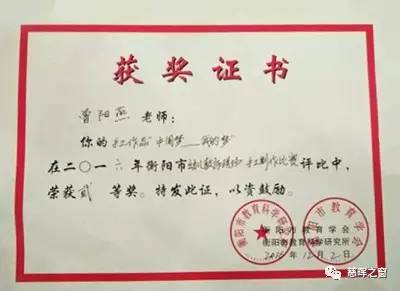 获奖证书
曾阳燕 老师：
你的手工作品"中国梦——我的梦"
在二〇一六年衡阳市幼儿教师现场手工制作比赛评比中，
荣获贰等奖。特发此证，以资鼓励。
衡阳市教育学会
衡阳市教育科学研究所
2016年12月2日
衡阳市教育科学研究所
衡阳市教育学会
慈晖之窗